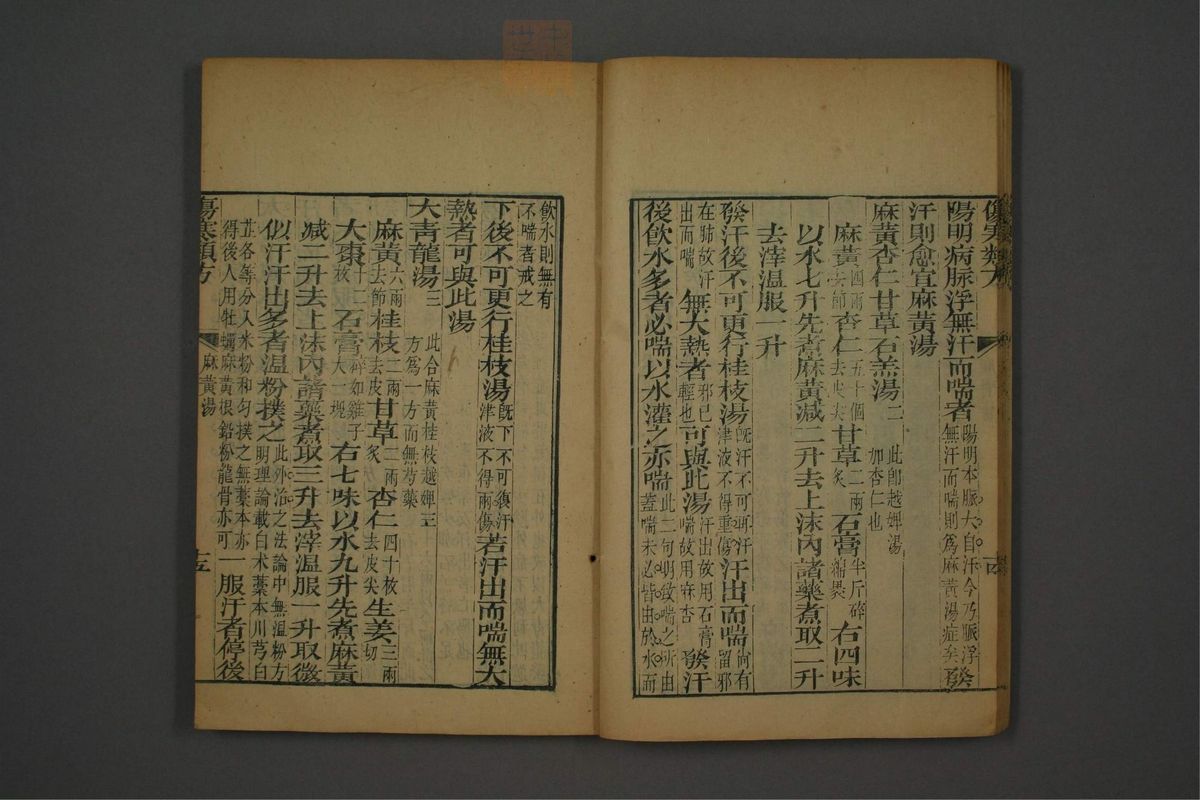 傷寒類方
陽明病脈浮無汗而喘者陽明本脈大自汗今乃脈浮無汗而喘則爲麻黃湯症矣發
汗則愈宜麻黃湯
麻黃杏仁甘草石羔湯二此卽越婢湯加杏仁也
麻黃四兩去節杏仁五十個去皮尖甘草二兩炙石膏半斤碎綿裹右四味
以水七升先煮麻黃減二升去上沫內諸藥煮取二升
去滓溫服一升
發汗後不可更行桂枝湯旣汗不可再汗津液不得重傷汗出而喘尚有留邪
在肺故汗出而喘無大熱者邪已輕也可與此湯汗出故用石膏喘故用麻杏發汗
後飲水多者必喘以水灌之亦喘此二句明致喘之所由蓋喘未必皆由於水而
飲水則無有不喘者戒之
下後不可更行桂枝湯旣下不可復汗津液不得兩傷若汗出而喘無大
熱者可與此湯
大青龍湯三此合麻黃桂枝越婢三方爲一方而無芍藥
麻黃六兩去節桂枝二兩去皮甘草二兩炙杏仁四十枚去皮尖生姜三兩切
大棗十二枚石膏碎如雞子大一塊右七味以水九升先煮麻黃
減二升去上沫內諸藥煮取三升去滓溫服一升取微
似汗汗出多者溫粉撲之此外治之法論中無溫粉方明理論載白朮藁本川芎白
芷各等分入米粉和勻撲之無藁本亦得後人用牡蠣麻黃根鉛粉龍骨亦可一服汗者停後
傷寒類方
麻黃湯